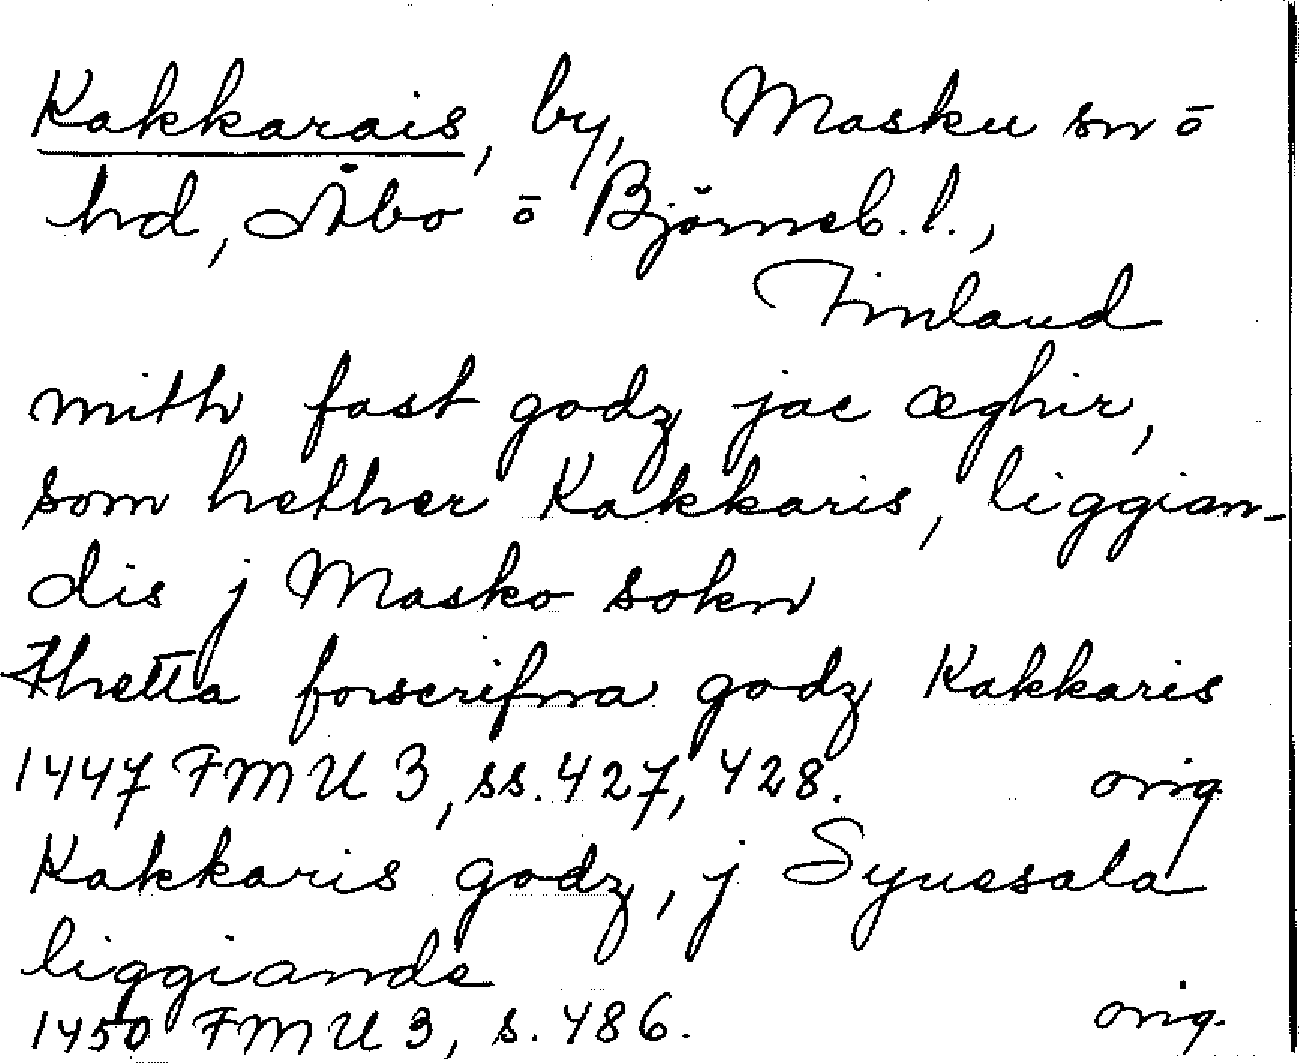 Kakkarais, by, Masku sn ō
hd, Åbo ō Björneb. l.,
Finland
mith fast godz jac æghir,
som hether Kakkaris, liggian-
dis j Masko sokn
Thetta forscrifna godz Kakkaris
1447 FMU 3, ss. 427, 428. orig.
Kakkaris godz, j Syuesala
liggiande
1450 FMU 3, s. 486. orig.